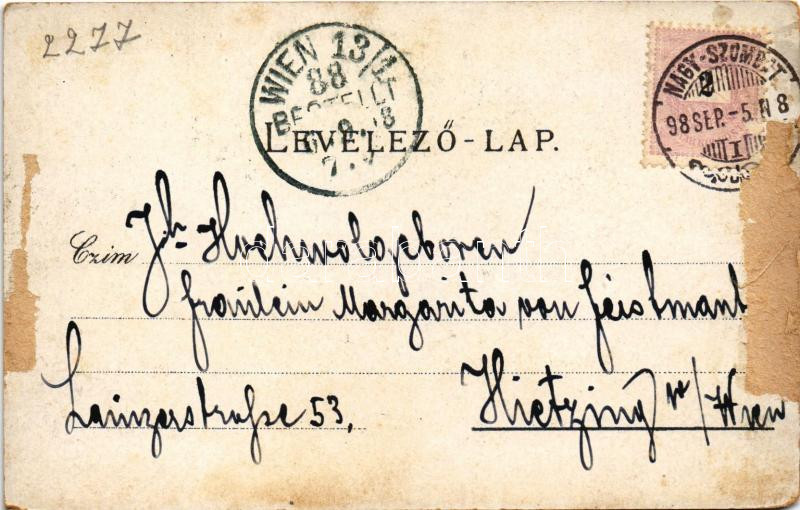 2277
WIEN 13/1
88
BESTELLT
NAGY-SZOMBAT
98 SEP.-5. N 8
LEVELEZŐ-LAP.
Czim Ihr Hochwolgeboren
Fräulein Margarita von
Lainzerstraße 53,
Hietzing /Wien